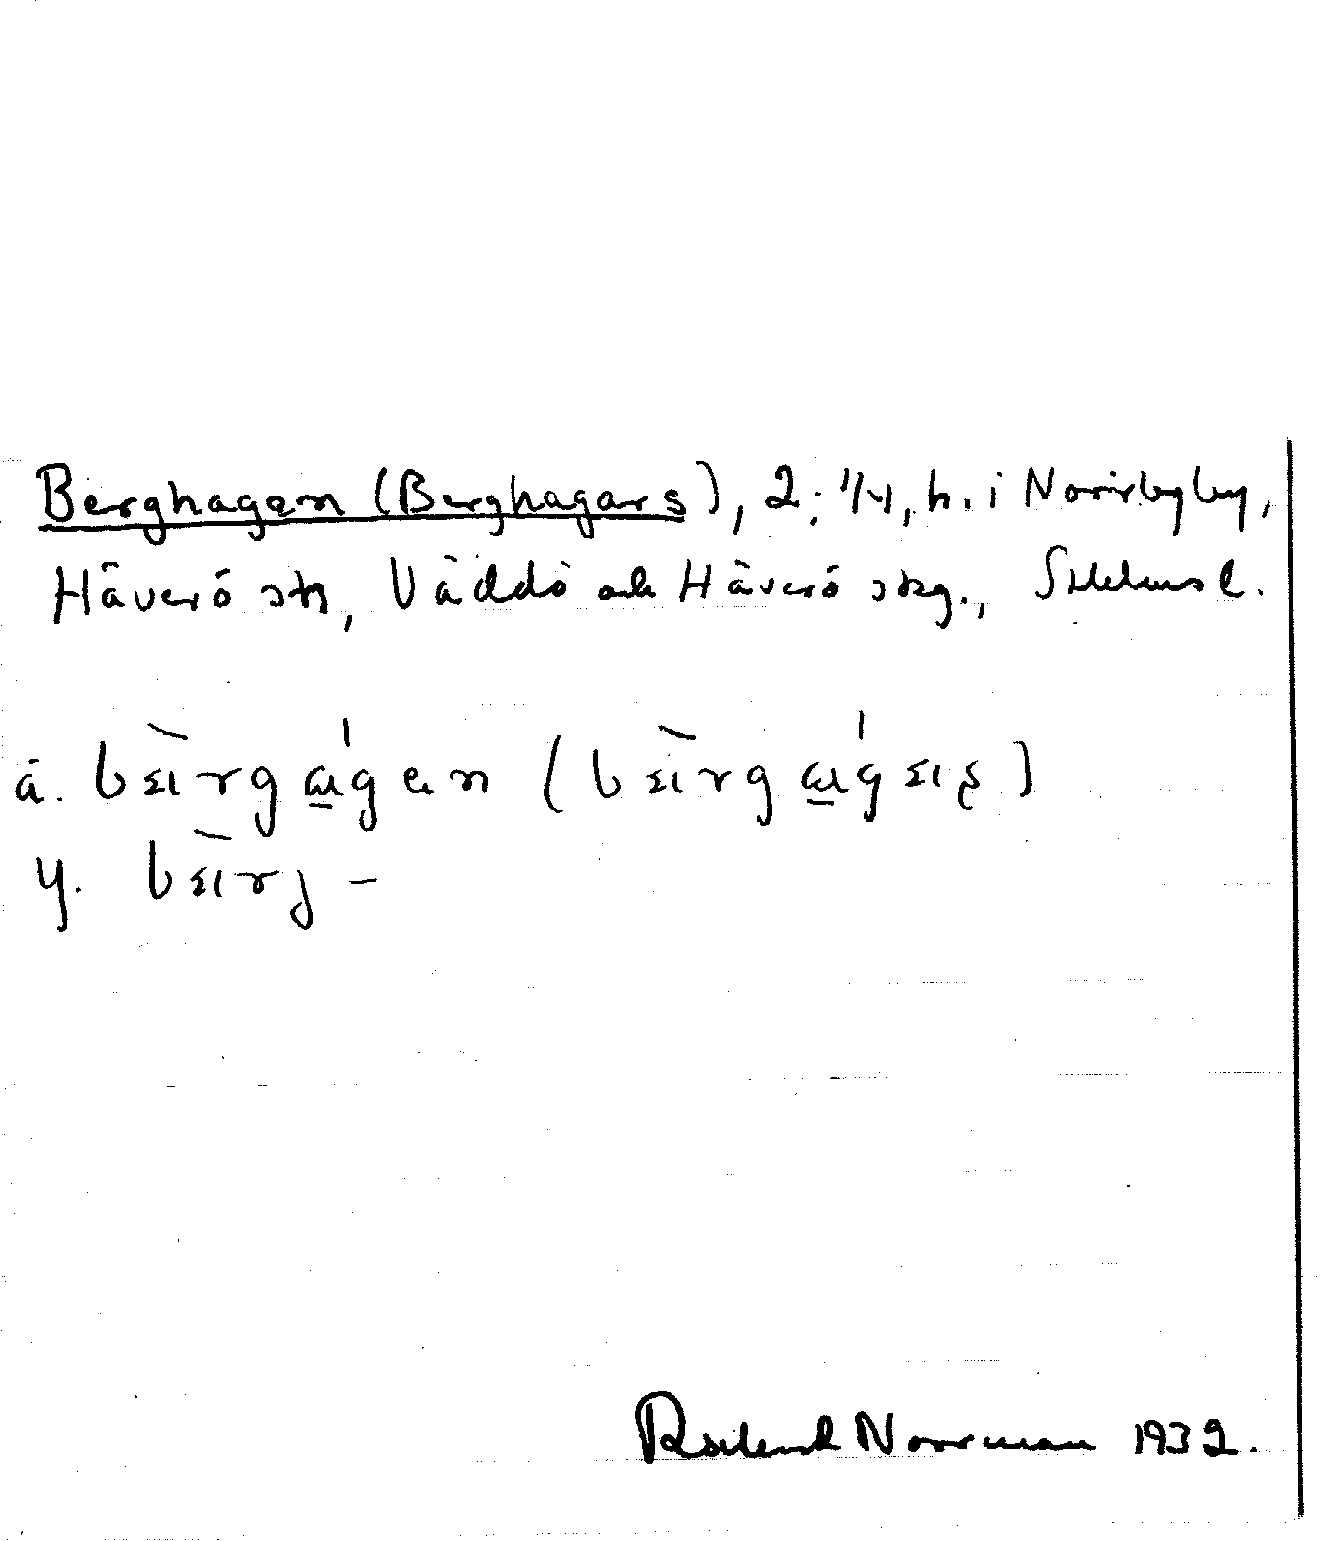 Berghagen (Berghagars), 2; 1/4, h. i Norrbyby,
Häverö sn, Väddö och Häverö skg., Sthlms l.
ä. bɛ̀rgɑ́gen (bɛ̀rgɑ́gɛʂ)
y. bɛ̀rj –
Norrman 1932.